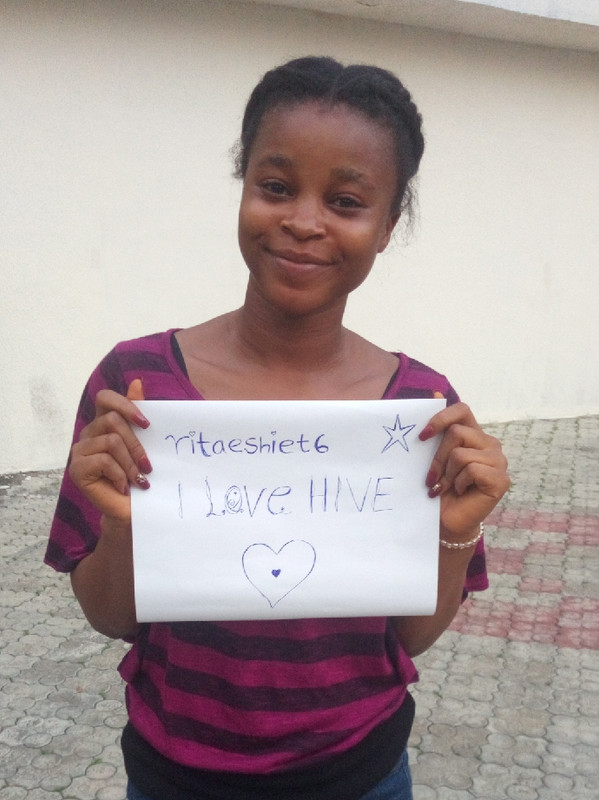 ritaeshiet6
I Love HIVE